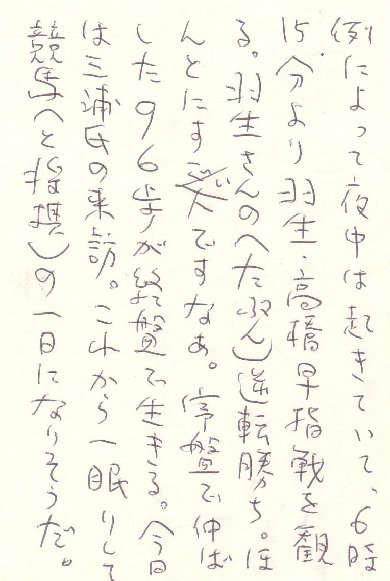 例によって夜中は起きていて、6時
15分より羽生・高橋早指戦を観
る。羽生さんの(たぶん)逆転勝ち。ほ
んとにすごい人ですなあ。序盤で伸ば
した96歩が終盤で生きる。今日
は三浦氏の来訪。これから一眠りして
競馬(と将棋)の一日になりそうだ。